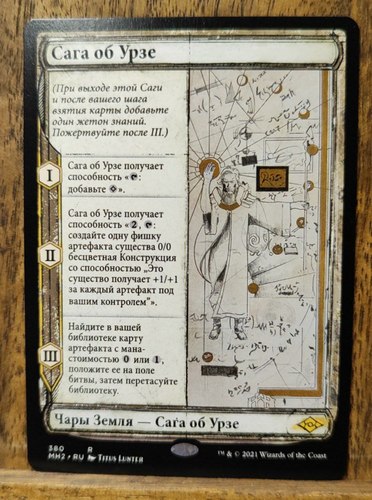 Сага об Урзе
(При выходе этой Саги
и после вашего шага
взятия карты добавьте
один жетон знаний.
Пожертвуйте после III.)
I
Сага об Урзе получает
способность «: 
добавьте ».
II
Сага об Урзе получает
способность «2, :
создайте одну фишку
артефакта существа 0/0
бесцветная Конструкция
со способностью „Это
существо получает +1/+1
за каждый артефакт под
вашим контролем“».
III
Найдите в вашей
библиотеке карту
артефакта с мана-
стоимостью 0 или 1,
положите ее на поле
битвы, затем перетасуйте
библиотеку.
Чары Земля — Сага об Урзе
380 R
MH2 • RU Titus Lunter
™ & © 2021 Wizards of the Coast